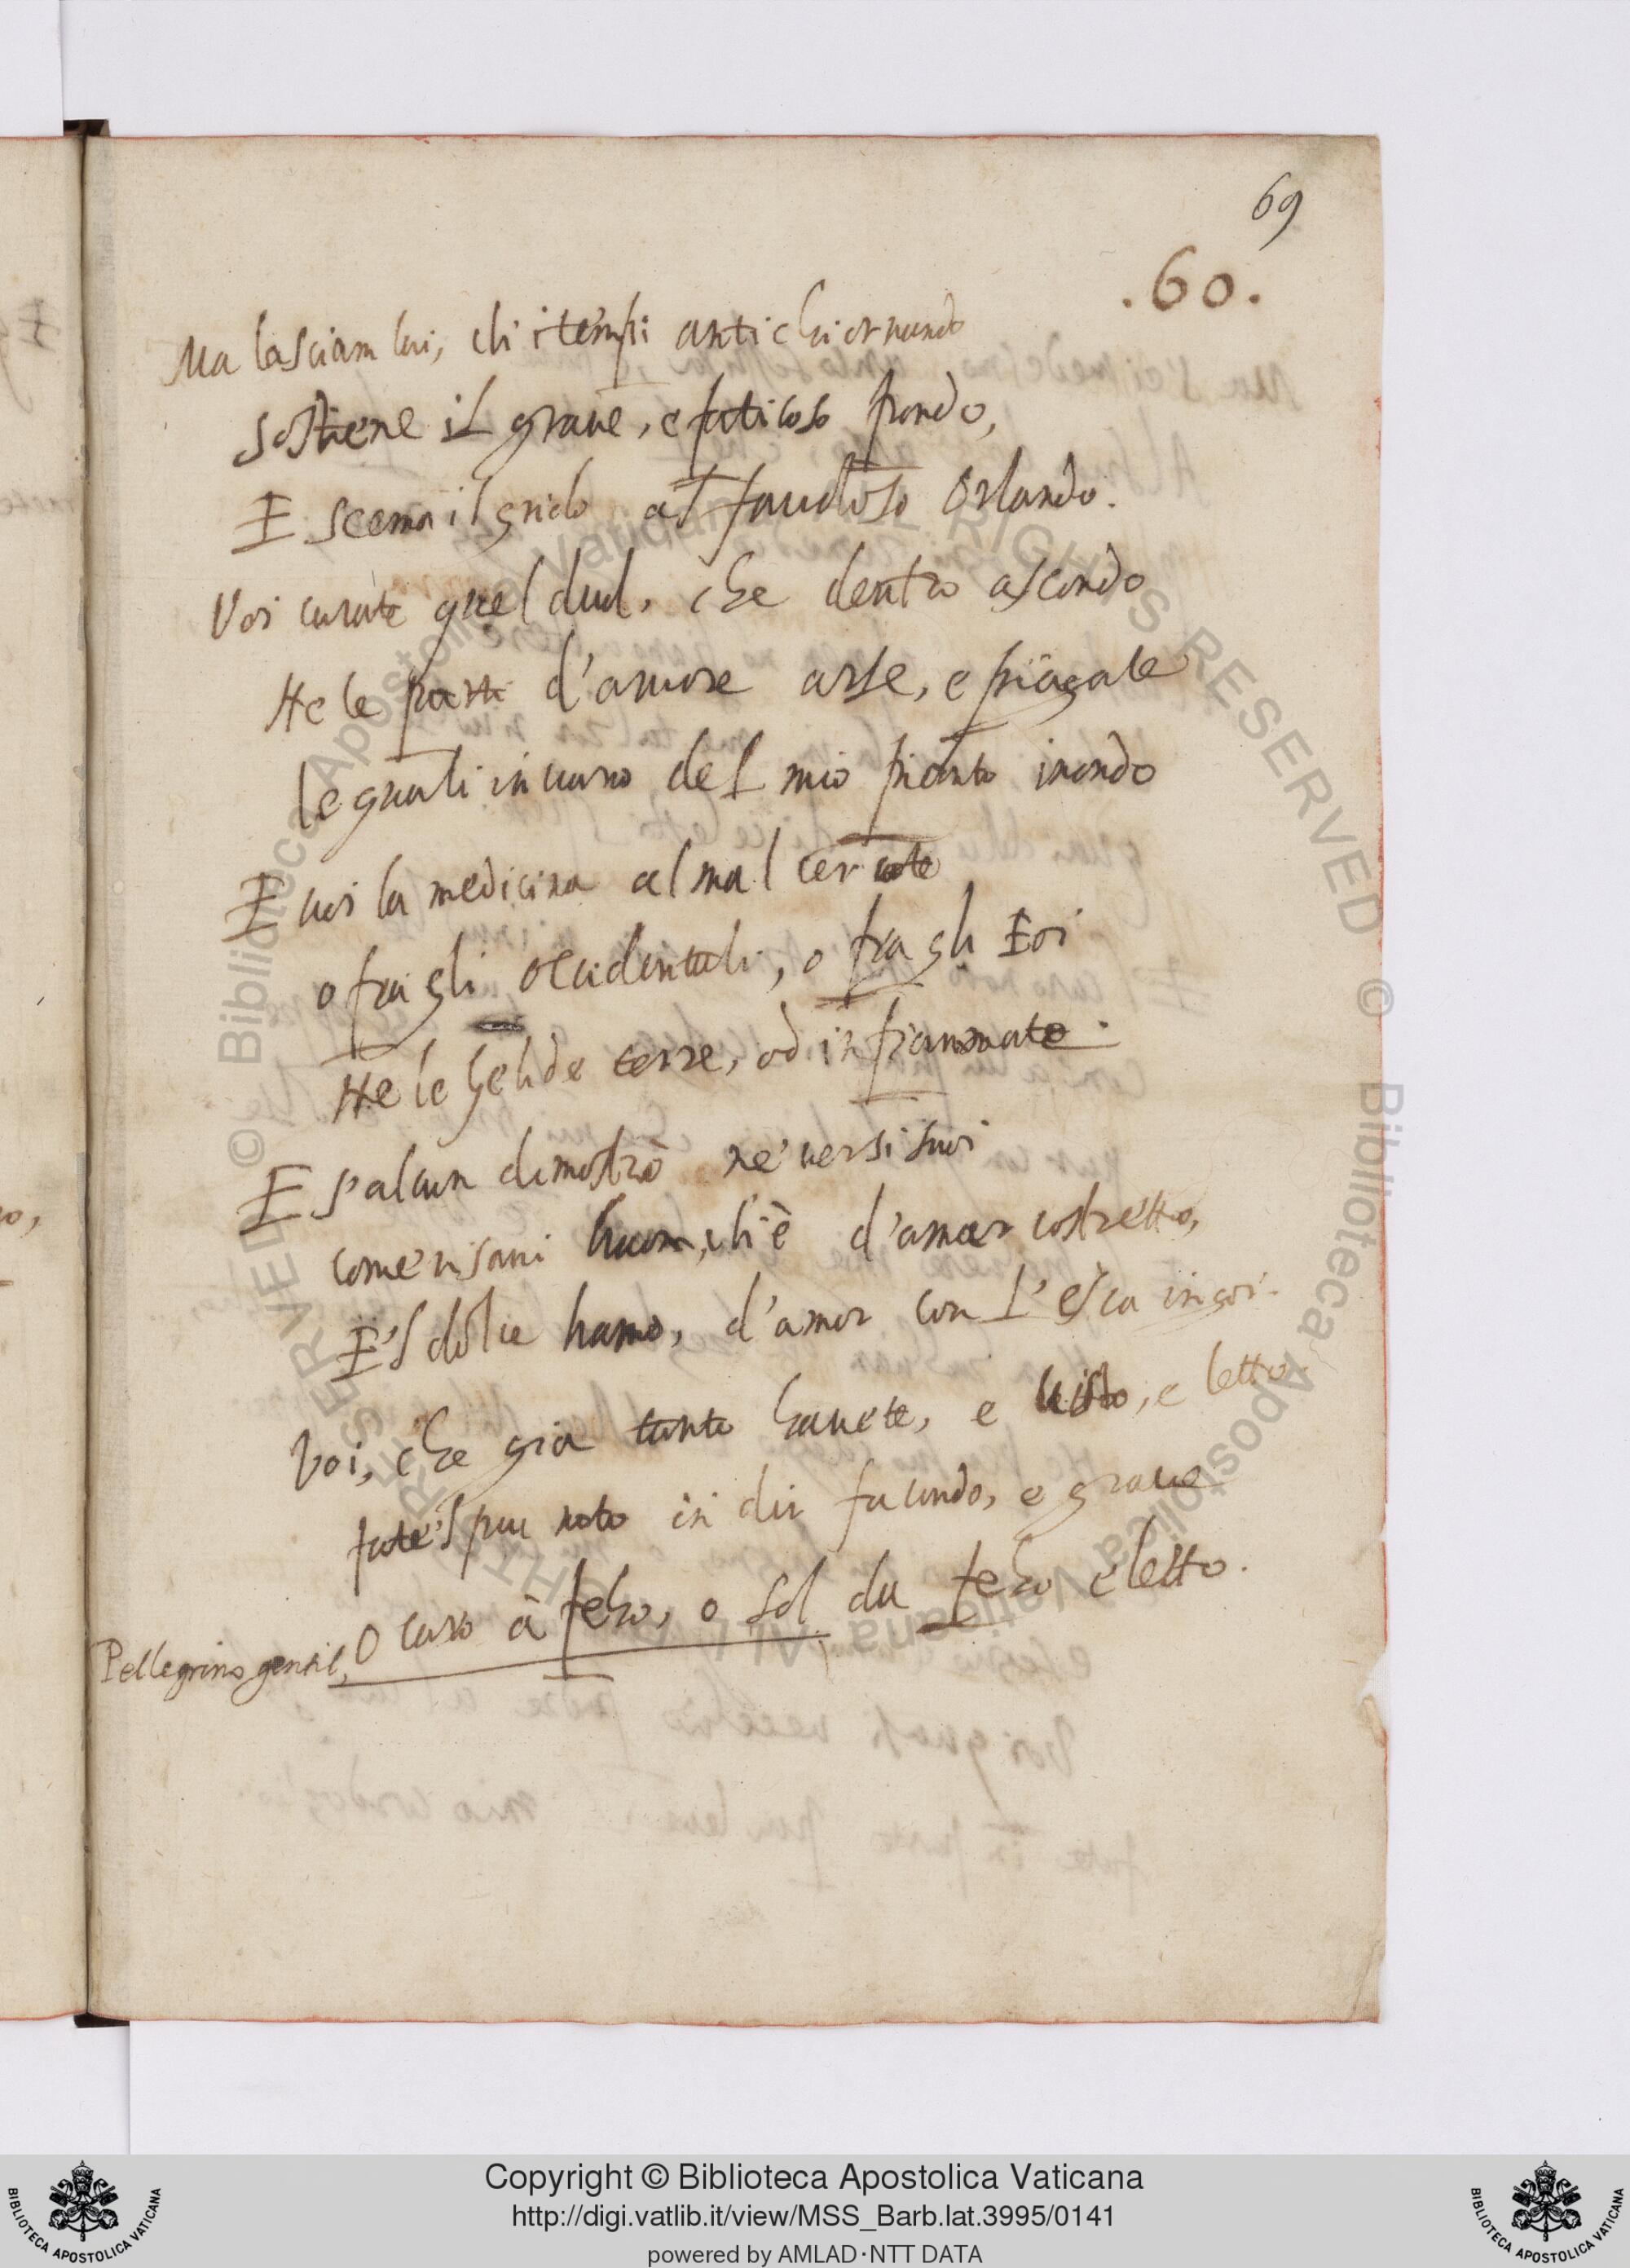 69
.60.
Ma lasciam lui, ch'i tempi antichi ornando
sostiene il graue, e faticoso pondo,
E scema il grido al fauoloso Orlando.
Voi curate quel duol, che dentro ascondo
Ne le parti d'amore arse, e piagate
le quali in uano del mio pianto inondo
E uoi la medicina al mal cercate
o fra gli occidentali, o fra gli Eoi
Ne le gelide terre, od infiammate.
E s'alcun dimostrò ne' uersi suoi
come risani huom, ch'è d'amar costretto,
E 'l dolce hamo, d'amor con l'esca ingoi.
Voi, che già tanto hauete, e uisto, e letto
fate 'l piu noto in dir facondo, e graue
O caro à febo, o sol da febo eletto.
Pellegrino gentil,
Copyright © Biblioteca Apostolica Vaticana
http://digi.vatlib.it/view/MSS_Barb.lat.3995/0141
powered by AMLAD·NTT DATA
BIBLIOTECA APOSTOLICA VATICANA
BIBLIOTECA APOSTOLICA VATICANA